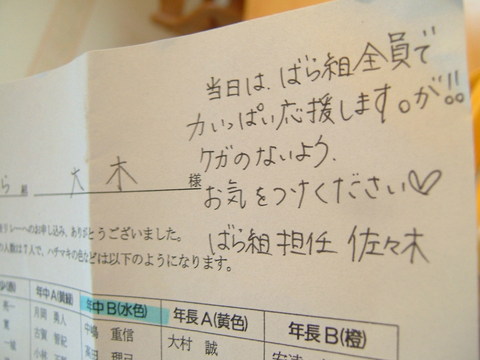 当日は、ばら組全員で
力いっぱい応援します。が!!
ケガのないよう、
お気をつけください♡
ばら組担任 佐々木
ら 組 大木 様
リレーへのお申し込み、ありがとうございました。
の人数は7人で、ハチマキの色などは以下のようになります。
年中A(黄緑) 年中B(水色) 年長A(黄色) 年長B(橙)
月岡 真人 中嶋 重信 大村 誠
古賀 智紀